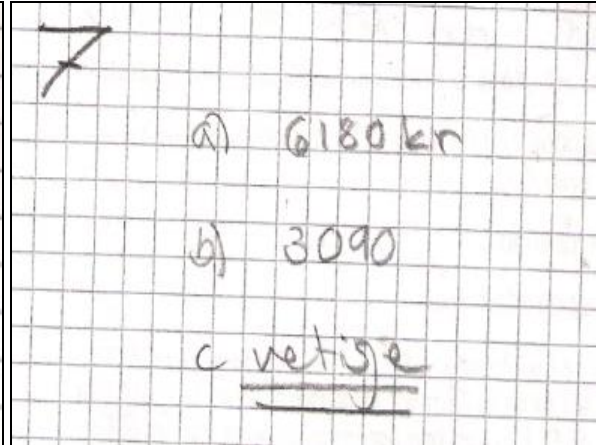 7
a) 6180 kr
b) 3090
c vetige